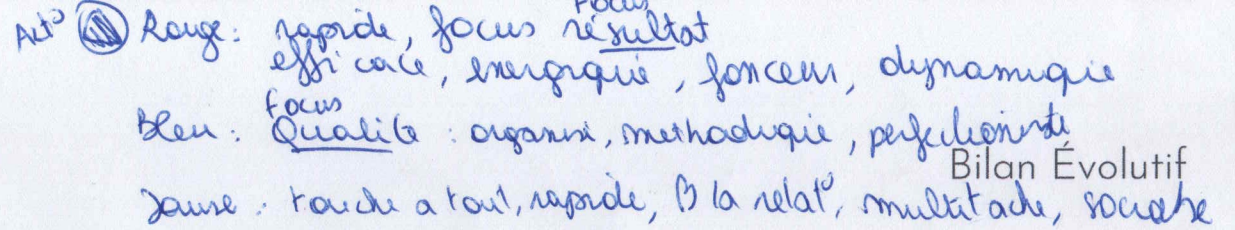 Act° Rouge : rapide, focus résultat
Focus
efficace, énergique, fonceur, dynamique
Focus
Bleu : Qualité : organisé, méthodique, perfectionniste
Bilan Évolutif
Jaune : touche a tout, rapide, la relat°, multitache, sociable